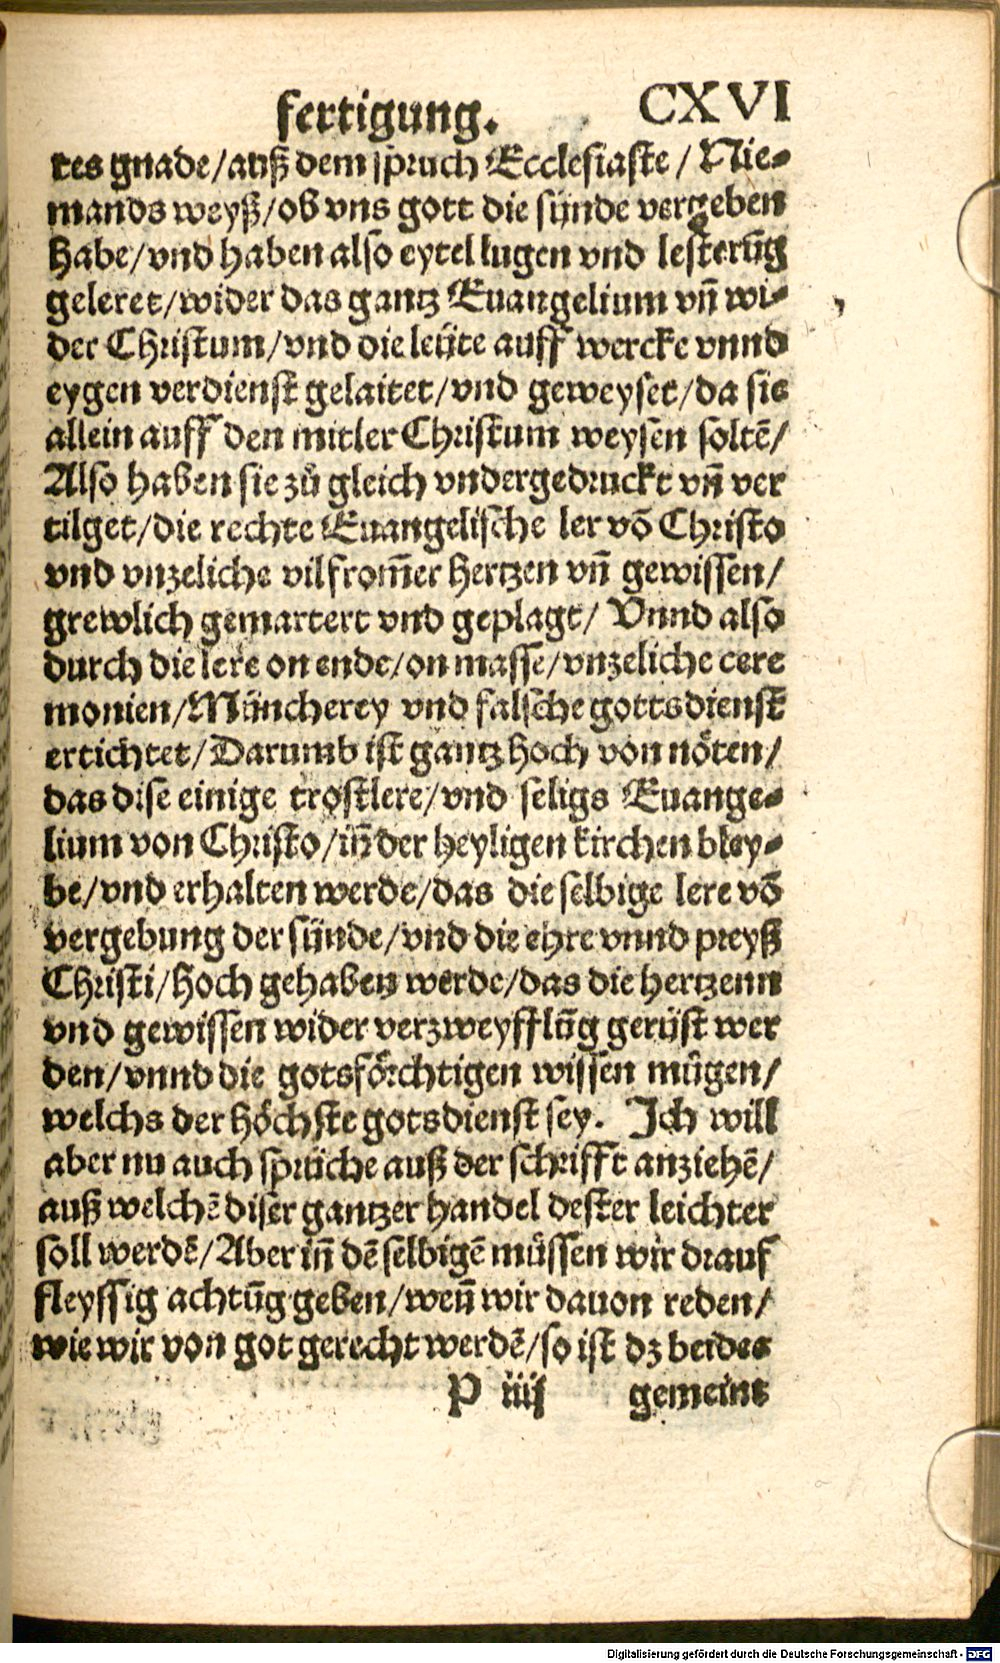 fertigung. CXVI
tes gnade/auß dem spruch Ecclesiaste/ Nie-
mands weyß/ob vns gott die sünde vergeben
habe/vnd haben also eytel lugen vnd lesterũg
geleret/wider das gantz Euangelium vñ wi-
der Christum/vnd die leüte auff wercke vnnd
eygen verdienst gelaitet/vnd geweyset/da sie
allein auff den mitler Christum weysen soltẽ/
Also haben sie zů gleich vndergedruckt vñ ver
tilget/die rechte Euangelische ler võ Christo
vnd vnzeliche vil from̃er hertzen vñ gewissen/
grewlich gemartert vnd geplagt/ Vnnd also
durch die lere on ende/on masse/vnzeliche cere
monien/Müncherey vnd falsche gottsdienst
ertichtet/Darumb ist gantz hoch von nöten/
das dise einige trostlere/vnd seligs Euange-
lium von Christo/iñ der heyligen kirchen bley-
be/vnd erhalten werde/das die selbige lere võ
vergebung der sünde/vnd die ehre vnnd preyß
Christi/hoch gehaben werde/das die hertzenn
vnd gewissen wider verzweyfflũg gerüst wer
den/vnnd die gotsförchtigen wissen mügen/
welchs der höchste gotsdienst sey. Ich will
aber nu auch sprüche auß der schrifft anziehẽ/
auß welchẽ diser gantzer handel dester leichter
soll werdẽ/Aber iñ dẽ selbigẽ müssen wir drauf
fleyssig achtũg geben/weñ wir dauon reden/
wie wir von got gerecht werdẽ/so ist dz beides
P iiij gemeint
Digitalisierung gefördert durch die Deutsche Forschungsgemeinschaft - DFG